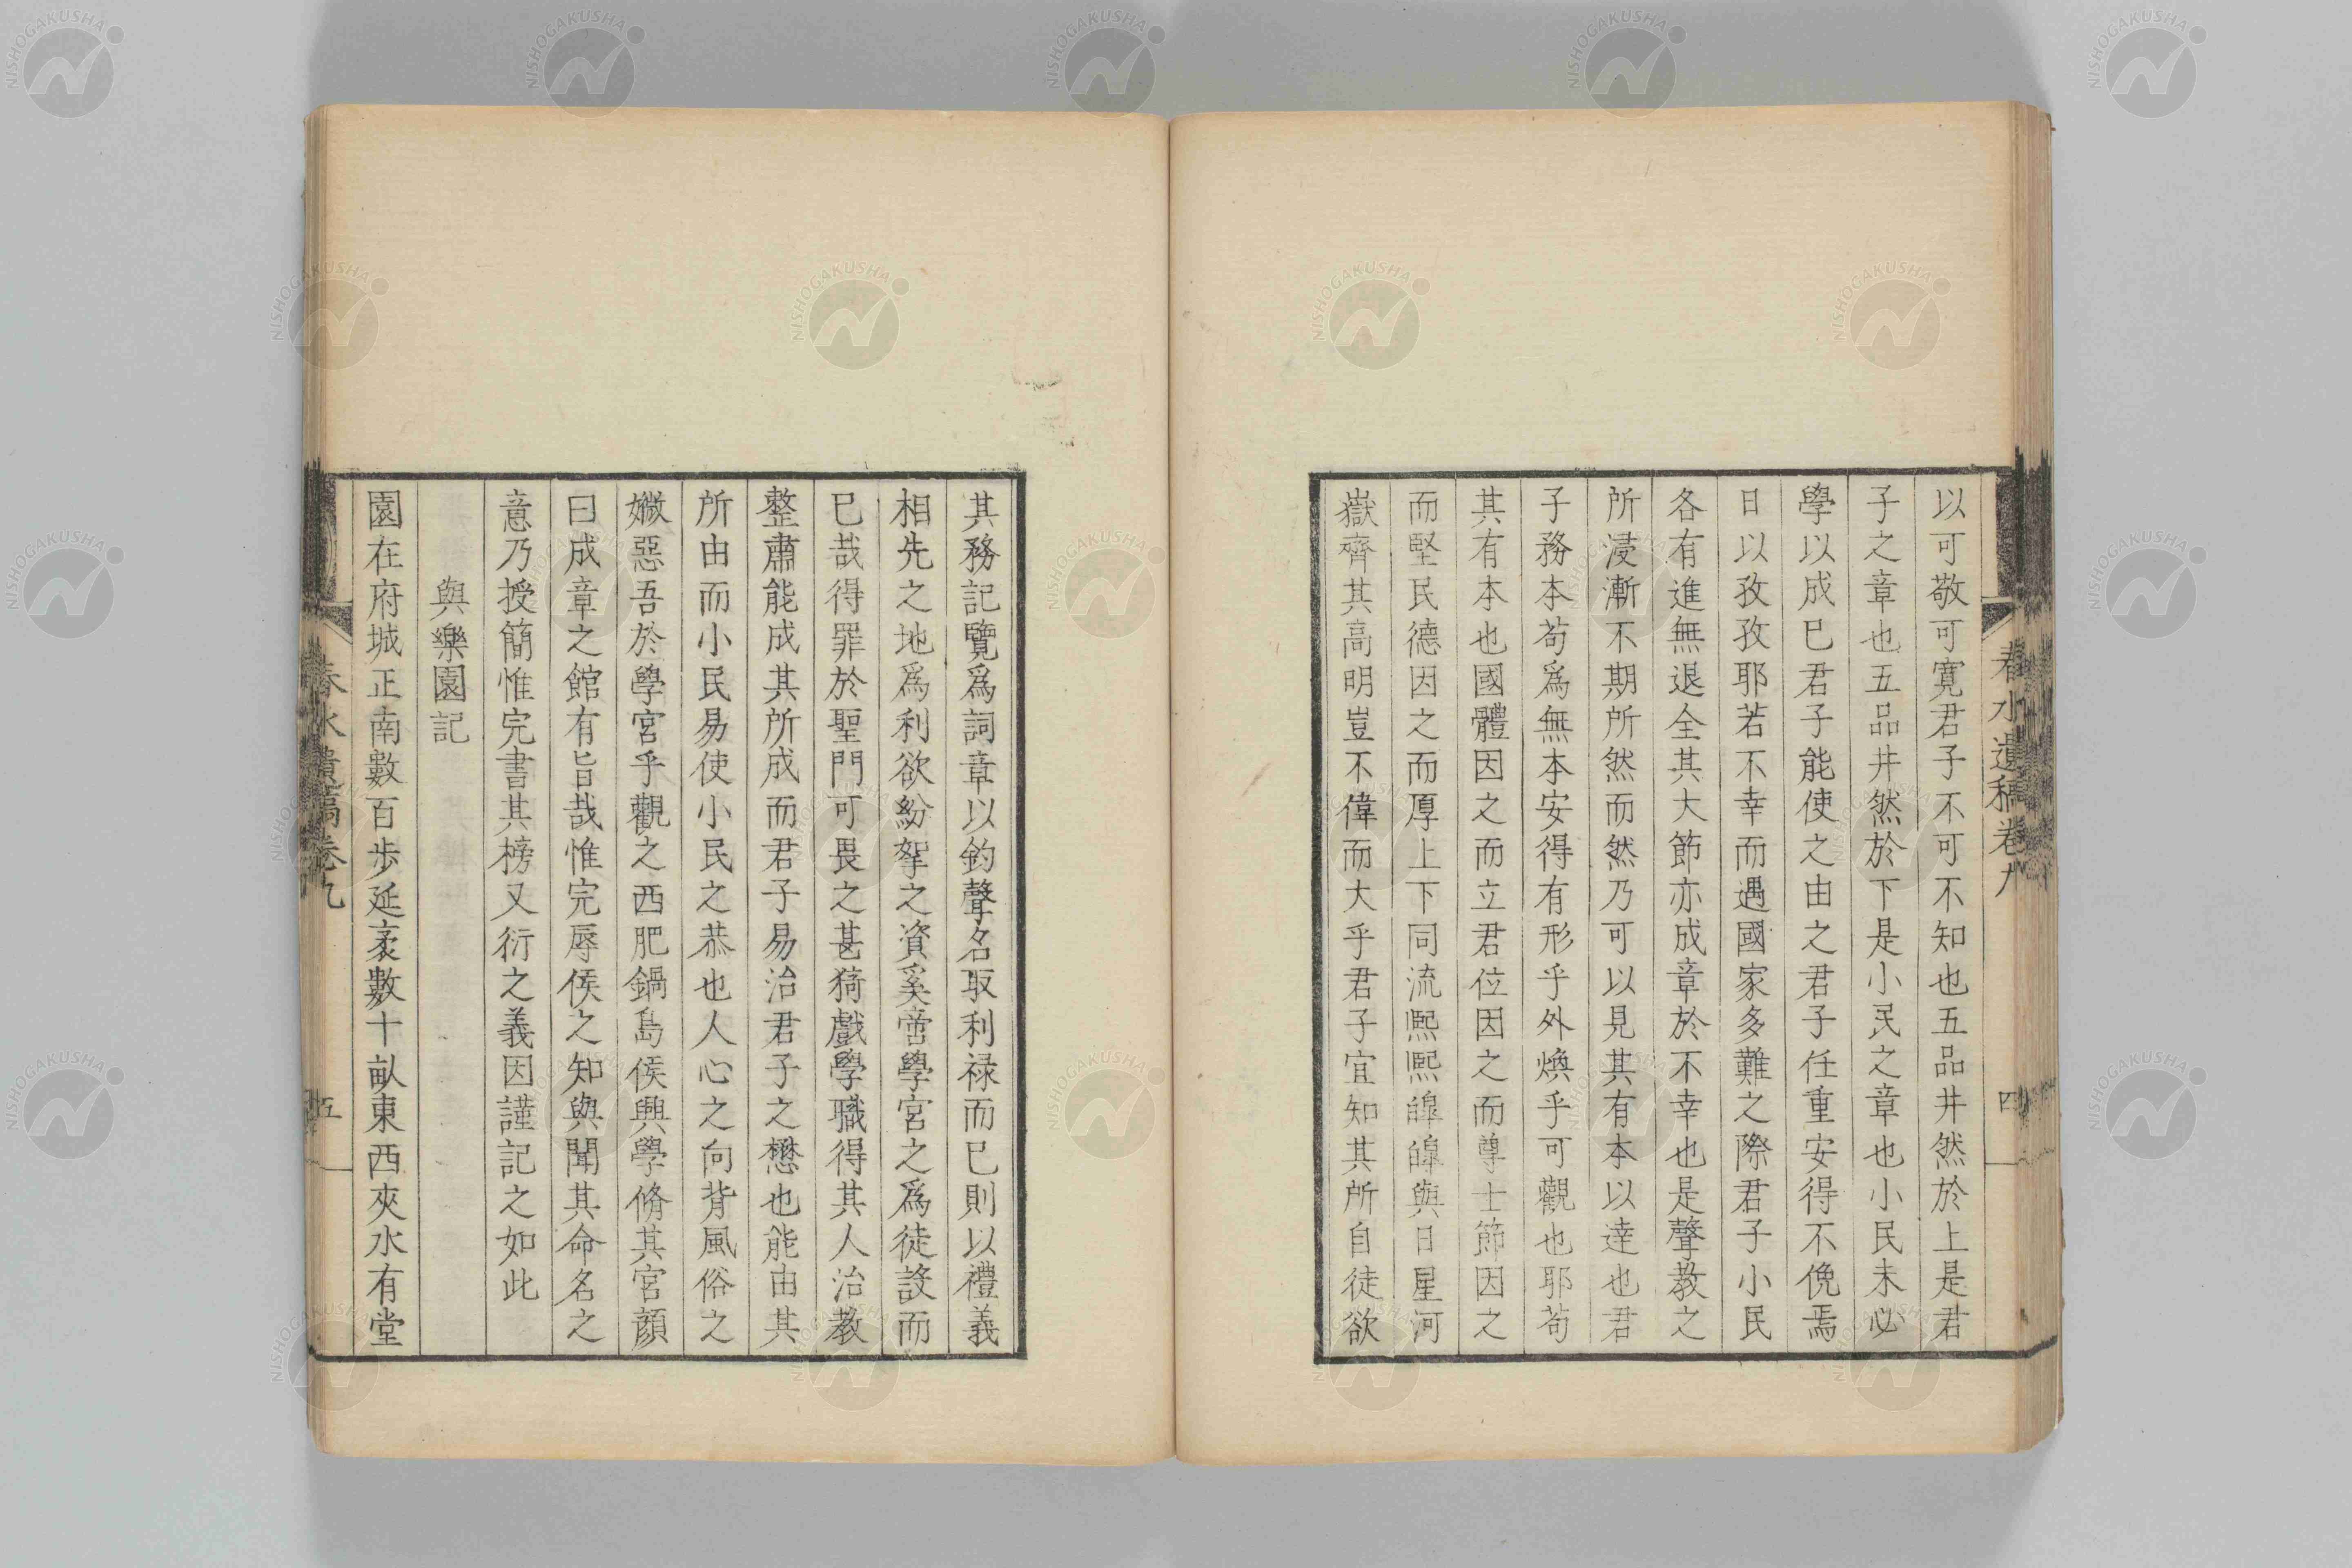 春水遺稿卷九
四
以可敬可寛君子不可不知也五品井然於上是君
子之章也五品井然於下是小民之章也小民未必
學以成已君子能使之由之君子任重安得不俛焉
日以孜孜耶若不幸而遇國家多難之際君子小民
各有進無退全其大節亦成章於不幸也是聲教之
所浸漸不期所然而然乃可以見其有本以達也君
子務本苟爲無本安得有形乎外煥乎可觀也耶苟
其有本也國體因之而立君位因之而尊士節因之
而堅民德因之而厚上下同流熈熈皥皥與日星河
嶽齊其高明豈不偉而大乎君子宜知其所自徒欲
其務記覽爲詞章以釣聲名取利禄而已則以禮義
相先之地爲利欲紛拏之資奚啻學宮之爲徒設而
已哉得罪於聖門可畏之甚猗戲學職得其人治教
整肅能成其所成而君子易治君子之懋也能由其
所由而小民易使小民之恭也人心之向背風俗之
媺惡吾於學宮乎觀之西肥鍋島侯興學脩其宮顔
曰成章之館有旨哉惟完辱侯之知與聞其命名之
意乃授簡惟完書其榜又衍之義因謹記之如此
與樂園記
園在府城正南數百步延袤數十畝東西夾水有堂
春水遺稿卷九
五
NISHOGAKUSHA